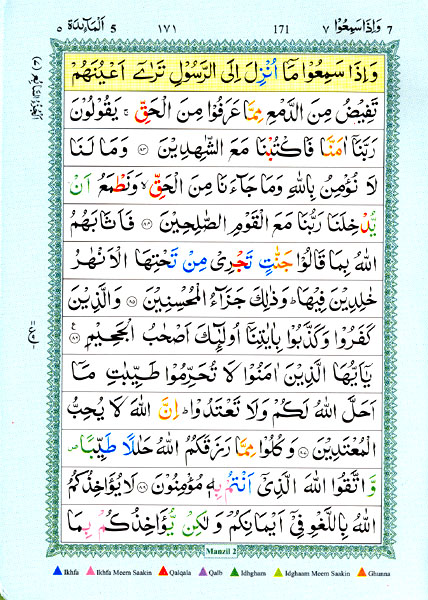 وَاِذَا سَمِعُوۡا ٧    7    171    ١٧١    اَلۡمَآئِدَة ٥    5
وَاِذَا سَمِعُوۡا مَاۤ اُنۡزِلَ اِلَى الرَّسُوۡلِ تَرٰٓى اَعۡيُنَهُمۡ
تَفِيۡضُ مِنَ الدَّمۡعِ مِمَّا عَرَفُوۡا مِنَ الۡحَـقِّ‌ۚ يَقُوۡلُوۡنَ
رَبَّنَاۤ اٰمَنَّا فَاكۡتُبۡنَا مَعَ الشّٰهِدِيۡنَ ٨٣ وَمَا لَـنَا
لَا نُؤۡمِنُ بِاللّٰهِ وَمَا جَآءَنَا مِنَ الۡحَـقِّۙ وَنَطۡمَعُ اَنۡ
يُّدۡخِلَـنَا رَبُّنَا مَعَ الۡقَوۡمِ الصّٰلِحِيۡنَ ٨٤ فَاَثَابَهُمُ
اللّٰهُ بِمَا قَالُوۡا جَنّٰتٍ تَجۡرِىۡ مِنۡ تَحۡتِهَا الۡاَنۡهٰرُ
خٰلِدِيۡنَ فِيۡهَا‌ؕ وَذٰلِكَ جَزَآءُ الۡمُحۡسِنِيۡنَ ٨٥ وَالَّذِيۡنَ
كَفَرُوۡا وَكَذَّبُوۡا بِاٰيٰتِنَاۤ اُولٰٓئِكَ اَصۡحٰبُ الۡجَحِيۡمِ ٨٦
يٰۤاَيُّهَا الَّذِيۡنَ اٰمَنُوۡا لَا تُحَرِّمُوۡا طَيِّبٰتِ مَاۤ
اَحَلَّ اللّٰهُ لَـكُمۡ وَلَا تَعۡتَدُوۡا‌ؕ اِنَّ اللّٰهَ لَا يُحِبُّ
الۡمُعۡتَدِيۡنَ ٨٧ وَكُلُوۡا مِمَّا رَزَقَكُمُ اللّٰهُ حَلٰلًا طَيِّبًا
وَّاتَّقُوا اللّٰهَ الَّذِىۡۤ اَنۡـتُمۡ بِهٖ مُؤۡمِنُوۡنَ ٨٨ لَا يُؤَاخِذُكُمُ
اللّٰهُ بِاللَّغۡوِ فِىۡۤ اَيۡمَانِكُمۡ وَلٰـكِنۡ يُّؤَاخِذُكُمۡ بِمَا
Manzil 2
Ikhfa    Ikhfa Meem Saakin    Qalqala    Qalb    Idgham    Idghaam Meem Saakin    Ghunna